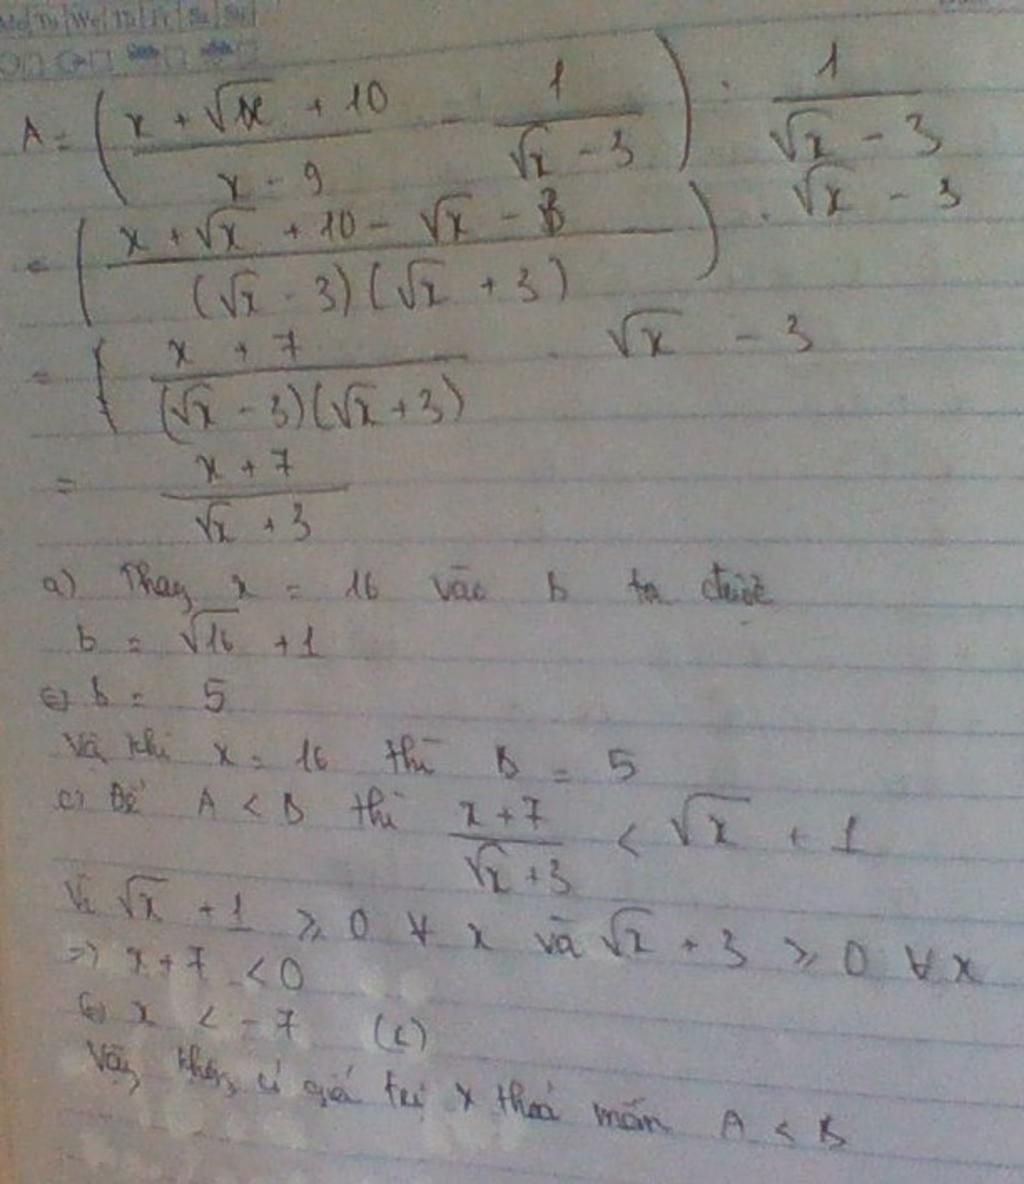 Mo Tu We Th Fr Sa Su
A = ( (x + √x + 10)/(x - 9) - 1/(√x - 3) ) : 1/(√x - 3)
= ( (x + √x + 10 - √x - 3)/((√x - 3)(√x + 3)) ) . √x - 3
= ( (x + 7)/((√x - 3)(√x + 3)) . √x - 3
= (x + 7)/(√x + 3)
a) Thay x = 16 vào B ta được
b = √16 + 1
⇔ b = 5
Vậy khi x = 16 thì B = 5
c) Để A < B thì (x + 7)/(√x + 3) < √x + 1
Vì √x + 1 ≥ 0 ∀ x và √x + 3 ≥ 0 ∀ x
=> x + 7 < 0
⇔ x < -7 (L)
Vậy không có giá trị x thoả mãn A < B